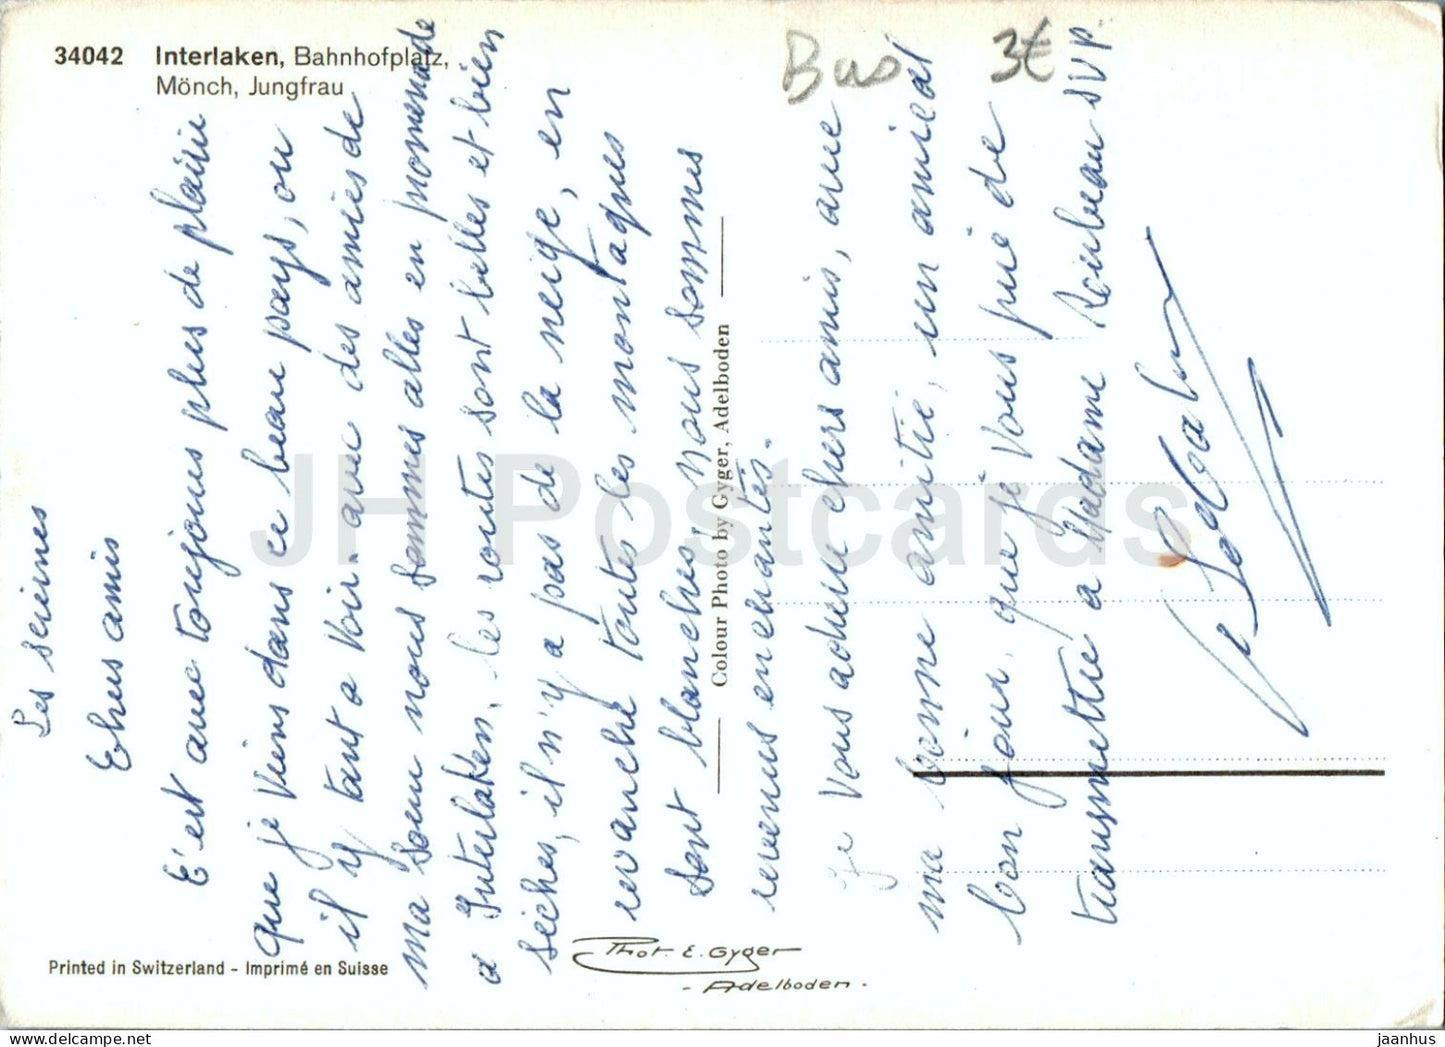 34042 Interlaken, Bahnhofplatz,
Mönch, Jungfrau
Bus
3€
Chers amis
C'est avec toujours plus de plaisir
que je viens dans ce beau pays, ou
il y tant a voir. avec des amies de
ma soeur nous sommes allés en promenade
a Interlaken, les routes sont belles et bien
sèches, il n'y a pas de la neige, en
revanche toutes les montagnes
sont blanches, nous sommes
revenus enchantés.
Je vous adresse chers amis, avec
ma bonne amitié, un amical
bon jour, que je vous prie de
transmettre a Madame Roubeau SVP.
Colour Photo by Gyger, Adelboden
Printed in Switzerland - Imprimé en Suisse
Phot. E. Gyger
- Adelboden -
JH Postcards
jaanhus © delcampe.net